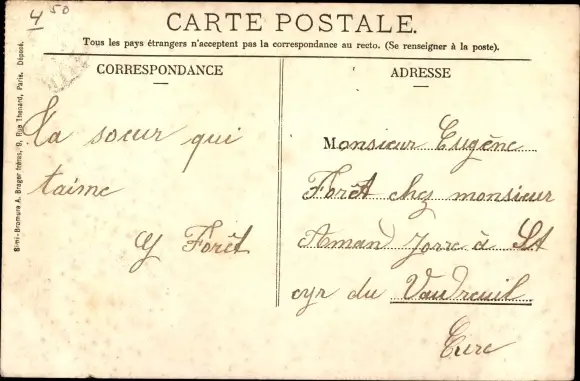 4 50
CARTE POSTALE.
Tous les pays étrangers n'acceptent pas la correspondance au recto. (Se renseigner à la poste).
CORRESPONDANCE
ADRESSE
Simi-Bromure A. Breger frères, 9, Rue Thénard, Paris. Déposé.
Ta soeur qui
taime
Y Forêt
Monsieur Eugène
Forêt chez monsieur
Aman Jorre à St
cyr du Vaudreuil
Eure